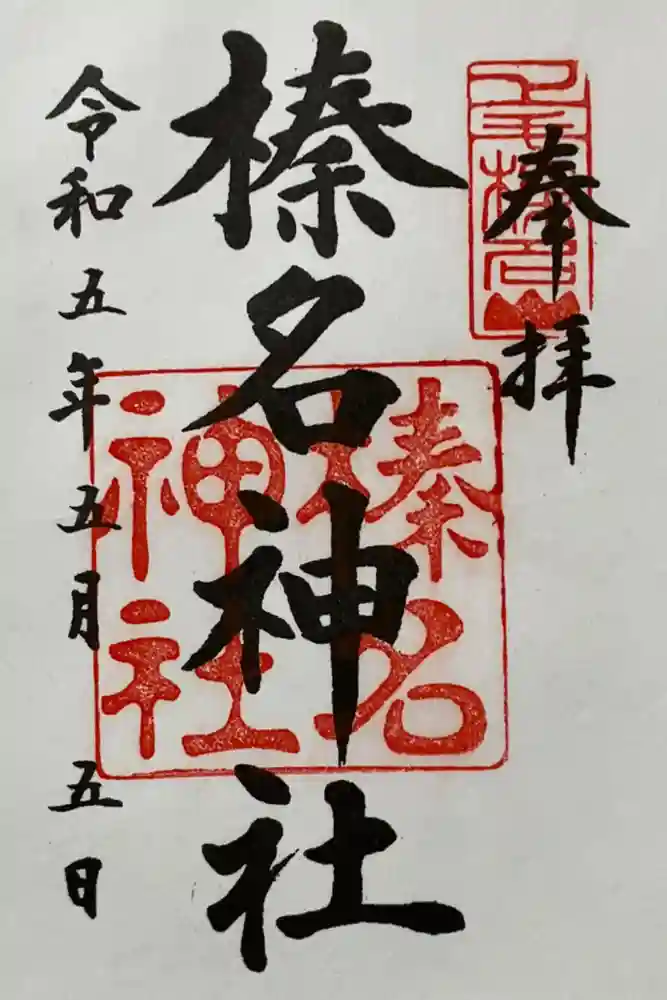 奉拝
榛名神社
榛名
神社
令和五年五月五日